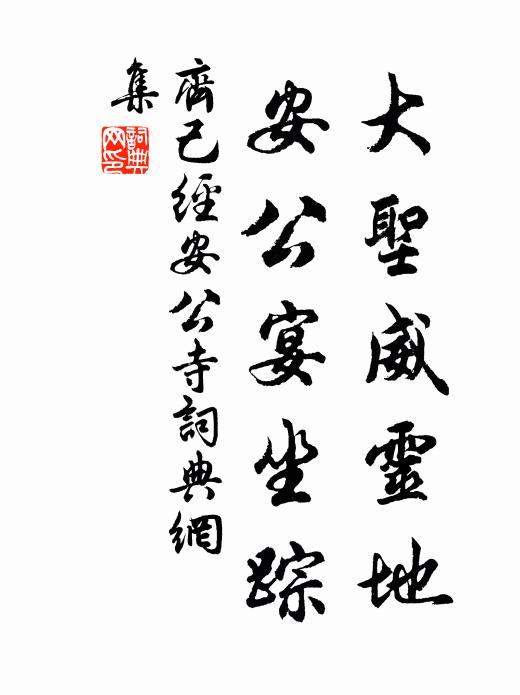 大聖威靈地
安公宴坐踪
齊己經安公寺詞典網
集
詞典
網印